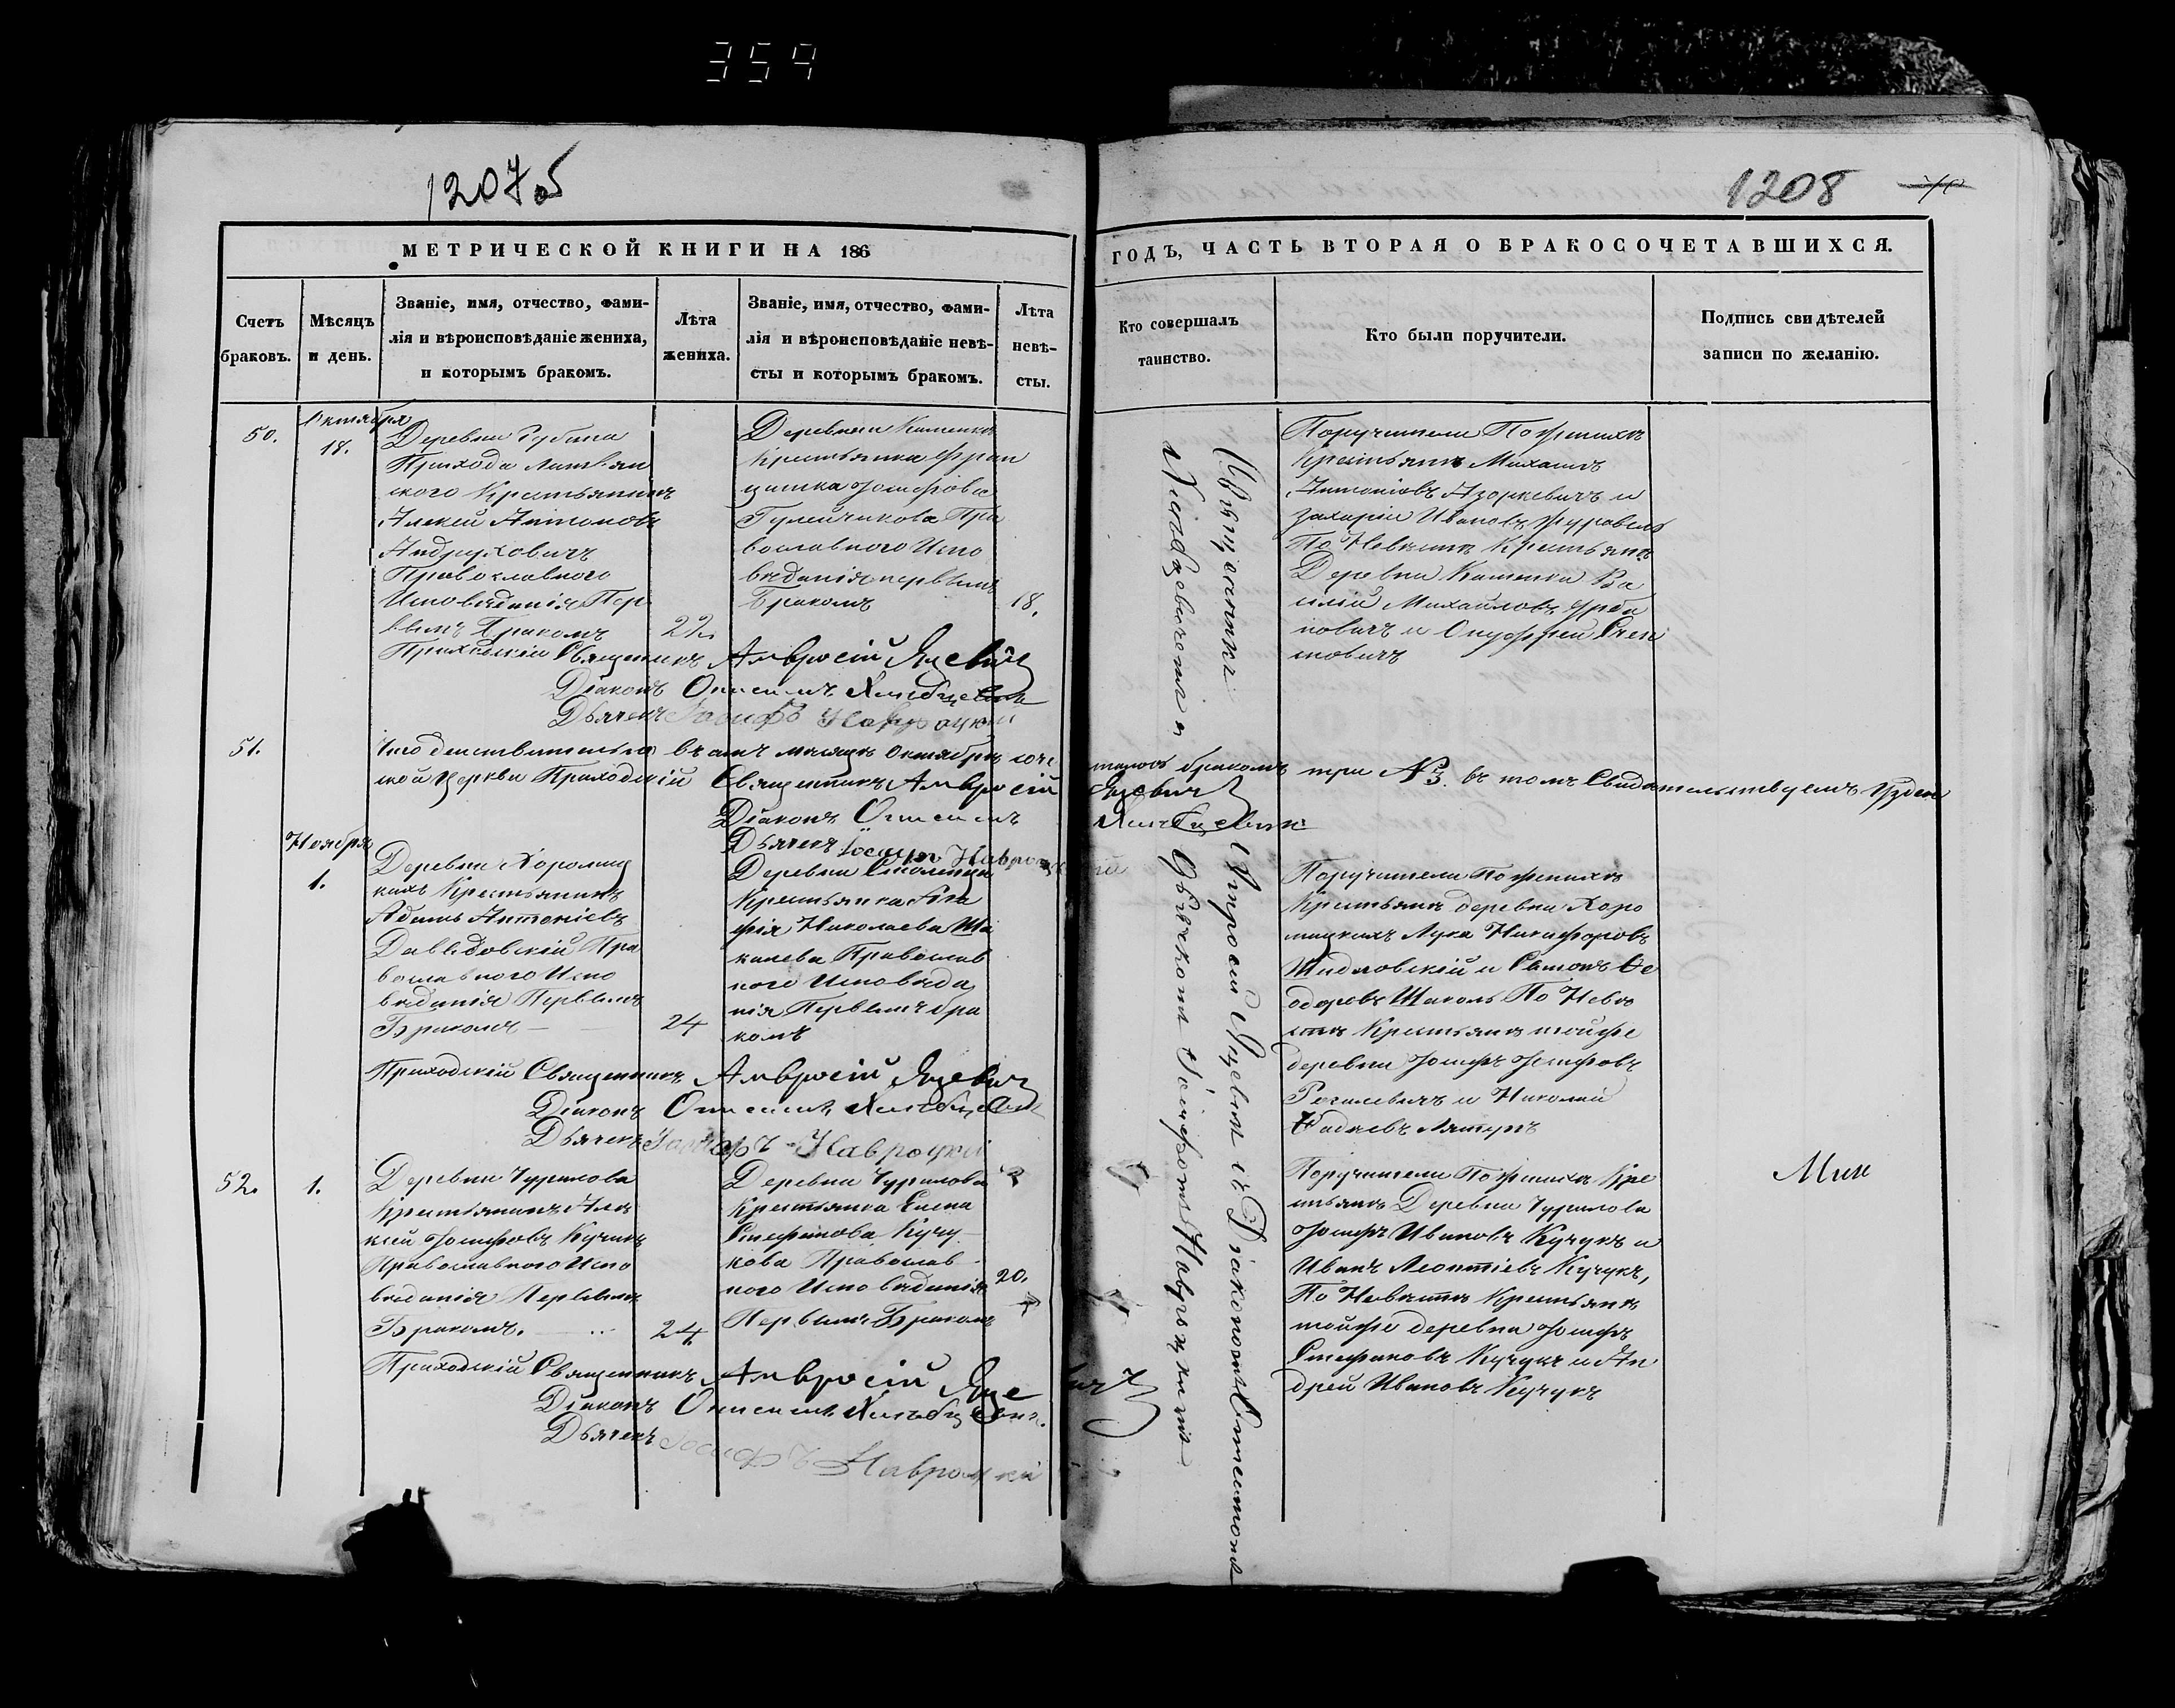 354
1207об
1208
МЕТРИЧЕСКОЙ КНИГИ НА 186
ГОДЪ, ЧАСТЬ ВТОРАЯ О БРАКОСОЧЕТАВШИХСЯ.
Счетъ
браковъ.
Мѣсяцъ
и день.
Званіе, имя, отчество, фами-
лія и вѣроисповѣданіе жениха,
и которымъ бракомъ.
Лѣта
жениха.
Званіе, имя, отчество, фами-
лія и вѣроисповѣданіе невѣ-
сты и которымъ бракомъ.
Лѣта
невѣ-
сты.
Кто совершалъ
таинство.
Кто были поручители.
Подпись свидѣтелей
записи по желанію.
50.
Октября
18.
Деревни
Прихода
Крестьянинъ
Алексѣй Антоновъ
Андруховичъ
Православного
Исповѣданія Пер
вымъ Бракомъ
22.
Деревни Каменки
Крестьянка Фран
цишка Іосифова
Гулейчикова Пра
вославного Испо
вѣданія первымъ
Бракомъ
18.
Поручители По женихѣ
Крестьяне Михаилъ
Антоніовъ Азоркевичъ и
Захарій Ивановъ Журавель
По Невѣстѣ Крестьяне
Деревни Каменки Ва
силій Михайловъ Урба
новичъ и Онуфрей
Приходскій Священникъ Амвросій Яцевичъ
Діаконъ Онисимъ Хлѣбцевичъ
Дьячекъ Іосифъ Навроцкій
51.
Что действительно въ семъ месяцѣ Октябрѣ
браком при №3. въ томъ Свидетельствуемъ
ской Церкви Приходскій Священникъ Амвросій Яцевичъ
Діаконъ Онисимъ Хлѣбцевичъ
Дьячекъ Іосифъ Навроцкій
Ноября
1.
Деревни Хоромиц
кихъ Крестьянинъ
Адамъ Антоніевъ
Давидовскій Пра
вославного Испо
вѣданія Первымъ
Бракомъ
24
Деревни
Крестьянка Ага
фія Николаева Ша
калева Православ
ного Исповѣда
нія Первымъ бра
комъ
Поручители По женихѣ
Крестьяне деревни Хоро
мицкихъ Лука Никифоровъ
Шидловскій и Семонъ Ѳе
одоровъ Шаколь По Невѣ
стѣ Крестьяне тойже
деревни Іосифъ Іосифовъ
и Николай
Приходскій Священникъ Амвросій Яцевичъ
Діаконъ Онисимъ Хлѣбцевичъ
Дьячекъ Іосифъ Навроцкій
52.
1.
Деревни Чурилова
Крестьянинъ Але
ксѣй Іосифовъ Кучукъ
Православного Испо
вѣданія Первымъ
Бракомъ.
24
Деревни Чурилова
Крестьянка Елена
Стефанова Кучу
кова Православ
ного Исповѣданія
Первымъ Бракомъ
20.
Поручители По женихѣ Кре
стьяне Деревни Чурилова
Іосифъ Ивановъ Кучукъ и
Иванъ Леонтіевъ Кучукъ,
По Невѣстѣ Крестьяне
тойже деревни Іосифъ
Стефановъ Кучукъ и Ан
дрей Ивановъ Кучукъ
Приходскій Священникъ Амвросій Яцевичъ
Діаконъ Онисимъ Хлѣбцевичъ.
Дьячекъ Іосифъ Навроцкій
Священникъ Амвросій Яцевичъ съ Діакономъ Онисимомъ
Хлѣбцевичемъ и Дьячкомъ Іосифомъ Навроцкимъ